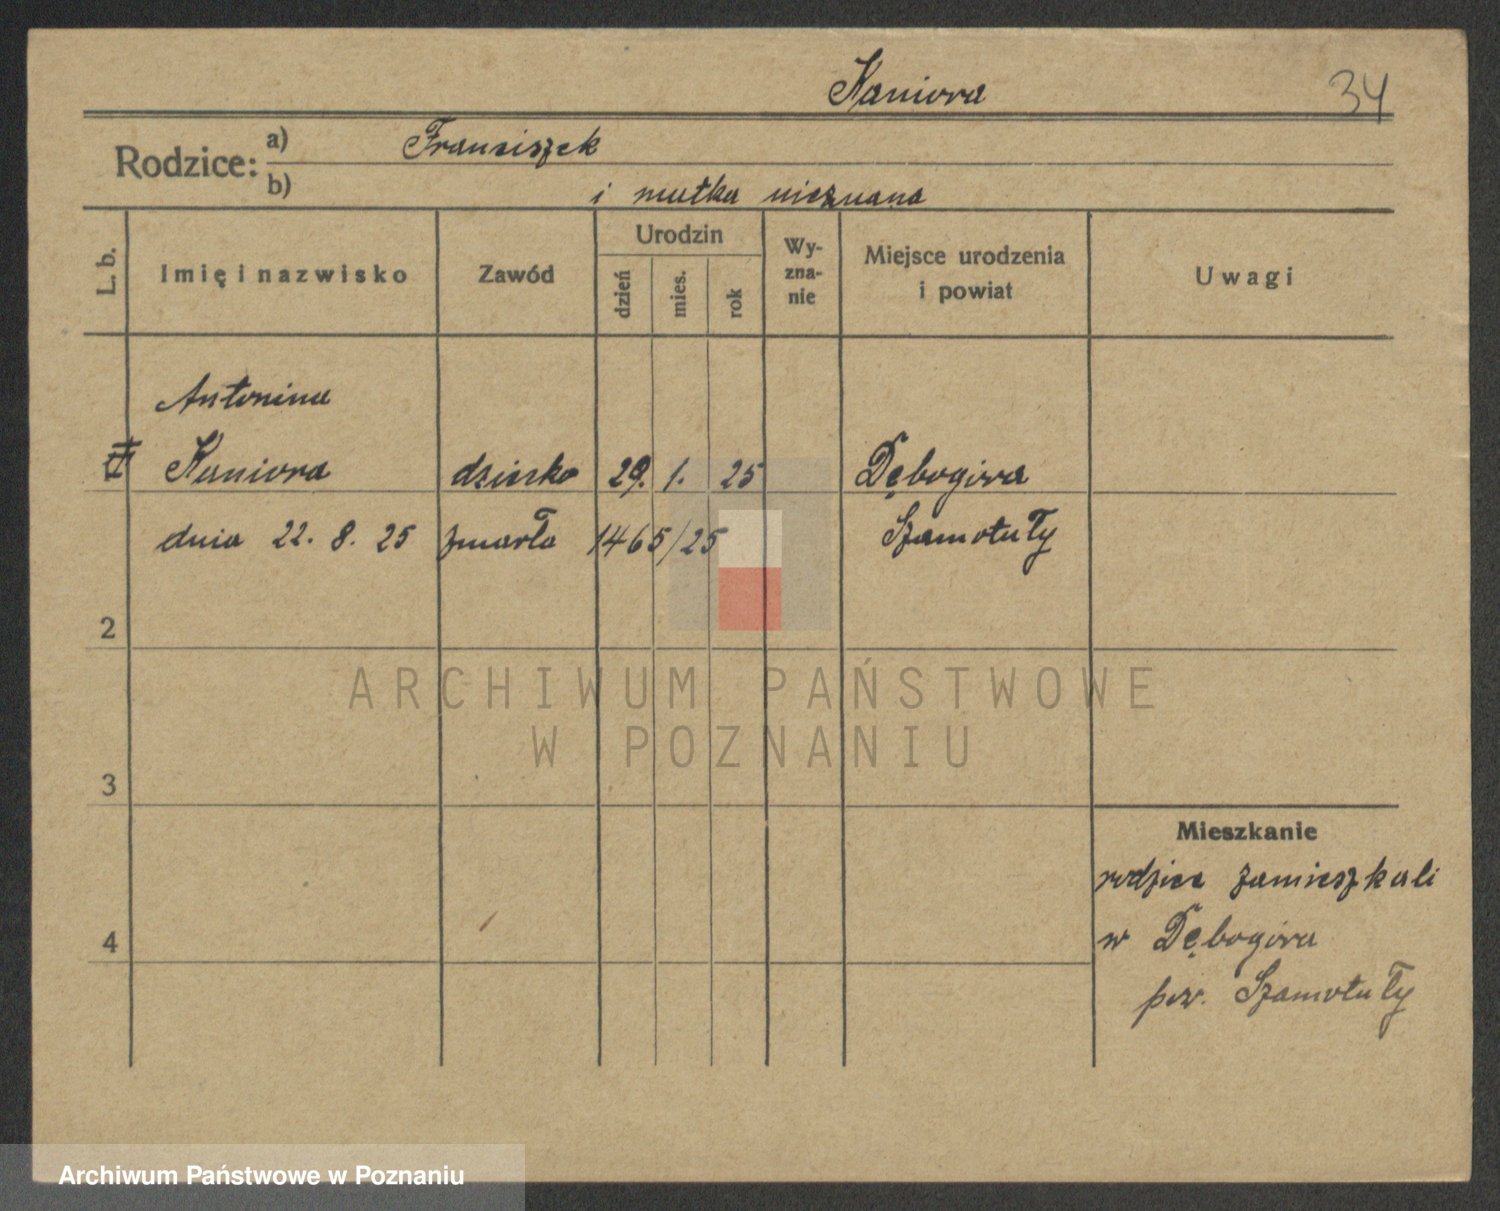 Kaniora 34
Rodzice: a) Franciszek
b) i matka nieznana
L. b. Imię i nazwisko Zawód Urodzin dzień mies. rok Wy-zna-nie Miejsce urodzenia i powiat Uwagi
Antonina
Kaniora dziecko 29. 1. 25 Dębogóra
dnia 22. 8. 25 zmarła 1465/25 Szamotuły
2
ARCHIWUM PAŃSTWOWE
W POZNANIU
3
Mieszkanie
rodzice zamieszkali
w Dębogóra
4
pow. Szamotuły
Archiwum Państwowe w Poznaniu